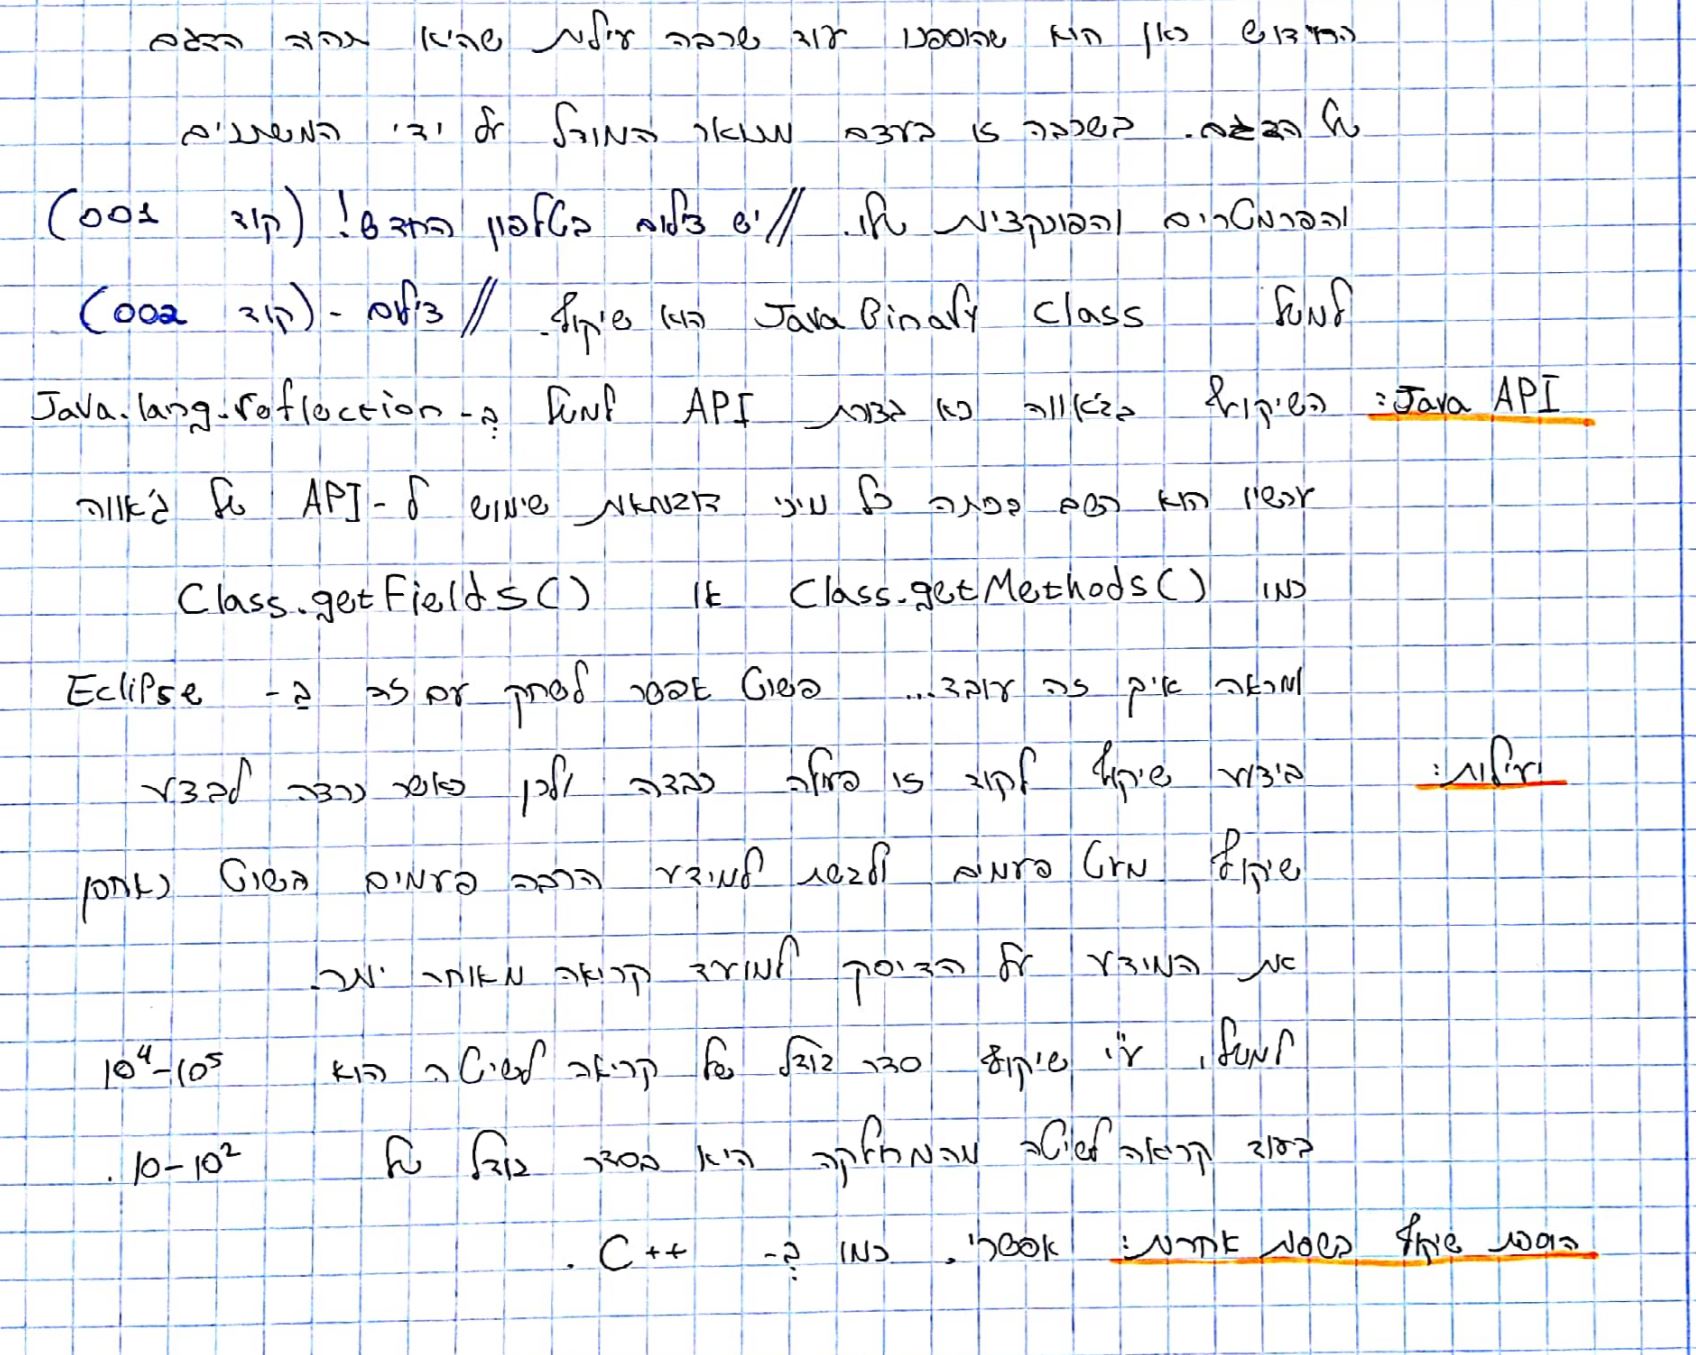 החידוש כאן הוא שהוספנו עוד שכבה עילית שהיא תהיה הדגם
של הדגם. בשכבה זו בעצם מתואר המודל על ידי המשתנים
והפרמטרים והפונקציות שלו. // יש צילום בטלפון החדש! (קוד 001)
למשל Java Binary Class הוא שיקוף. // צילום - (קוד 002)
Java API: השיקוף בג'אווה בא בצורת API למשל ב- Java.lang.reflection
עכשיו הוא רשם בכתה כל מיני דוגמאות שימוש ל-API של ג'אווה
כמו Class.getMethods() או Class.getFields()
ומראה איך זה עובד... פשוט אפשר לשחק עם זה ב- Eclipse
יעילות: ביצוע שיקוף לקוד זו פעולה כבדה ולכן כאשר נרצה לבצע
שיקוף מעט פעמים ולגשת למידע הרבה פעמים פשוט נאחסן
את המידע על הדיסק למועד קריאה מאוחר יותר.
למשל, ע"י שיקוף סדר גודל של קריאה לשיטה הוא 10⁴-10⁵
בעוד קריאה לשיטה מהמחלקה היא בסדר גודל של 10-10².
הוספת שיקוף בשפות אחרות: אפשרי. כמו ב- C++.